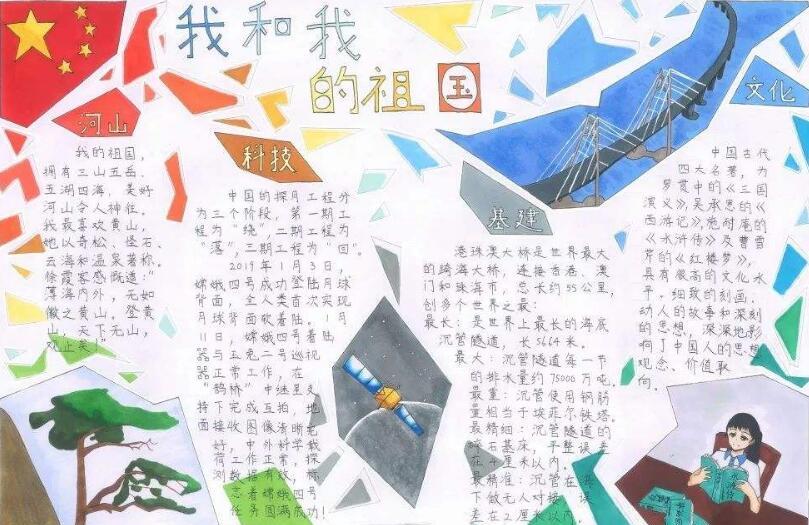 我和我
的祖国
河山
我的祖国，
拥有三山五岳、
五湖四海，美好
河山令人神往。
我最喜欢黄山，
她以奇松、怪石、
云海和温泉著称。
徐霞客感慨道：“
薄海内外，无如
徽之黄山。登黄
山，天下无山，
观止矣！”
科技
中国的探月工程分
为三个阶段，第一期工
程为“绕”，二期工程为
“落”，三期工程为“回”。
2019年1月3日，
嫦娥四号成功登陆月球
背面，全人类首次实现
月球背面软着陆。1月
11日，嫦娥四号着陆
器与玉兔二号巡视
器正常工作，在
“鹊桥”中继星支
持下完成互拍，地
面接收图像清晰完
好，中外科学载
荷工作正常，探
测数据有效，标
志着嫦娥四号
任务圆满成功！
基建
港珠澳大桥是世界最大
的跨海大桥，连接香港、澳
门和珠海市，总长约55公里，
创多个世界之最：
最长：是世界上最长的海底
沉管隧道，长5664米。
最大：沉管隧道每一节
的排水量约75000万吨。
最重：沉管使用钢筋
量相当于埃菲尔铁塔。
最精细：沉管隧道的
碎石基床，平整误差
在4厘米以内。
最精准：沉管在海
下做无人对接，误
差在2厘米以内。
文化
中国古代
四大名著，为
罗贯中的《三国
演义》，吴承恩的《
西游记》，施耐庵的
《水浒传》及曹雪
芹的《红楼梦》，
具有很高的文化水
平，细致的刻画、
动人的故事和深刻
的思想，深深地影
响了中国人的思想
观念、价值取
向。
水浒传